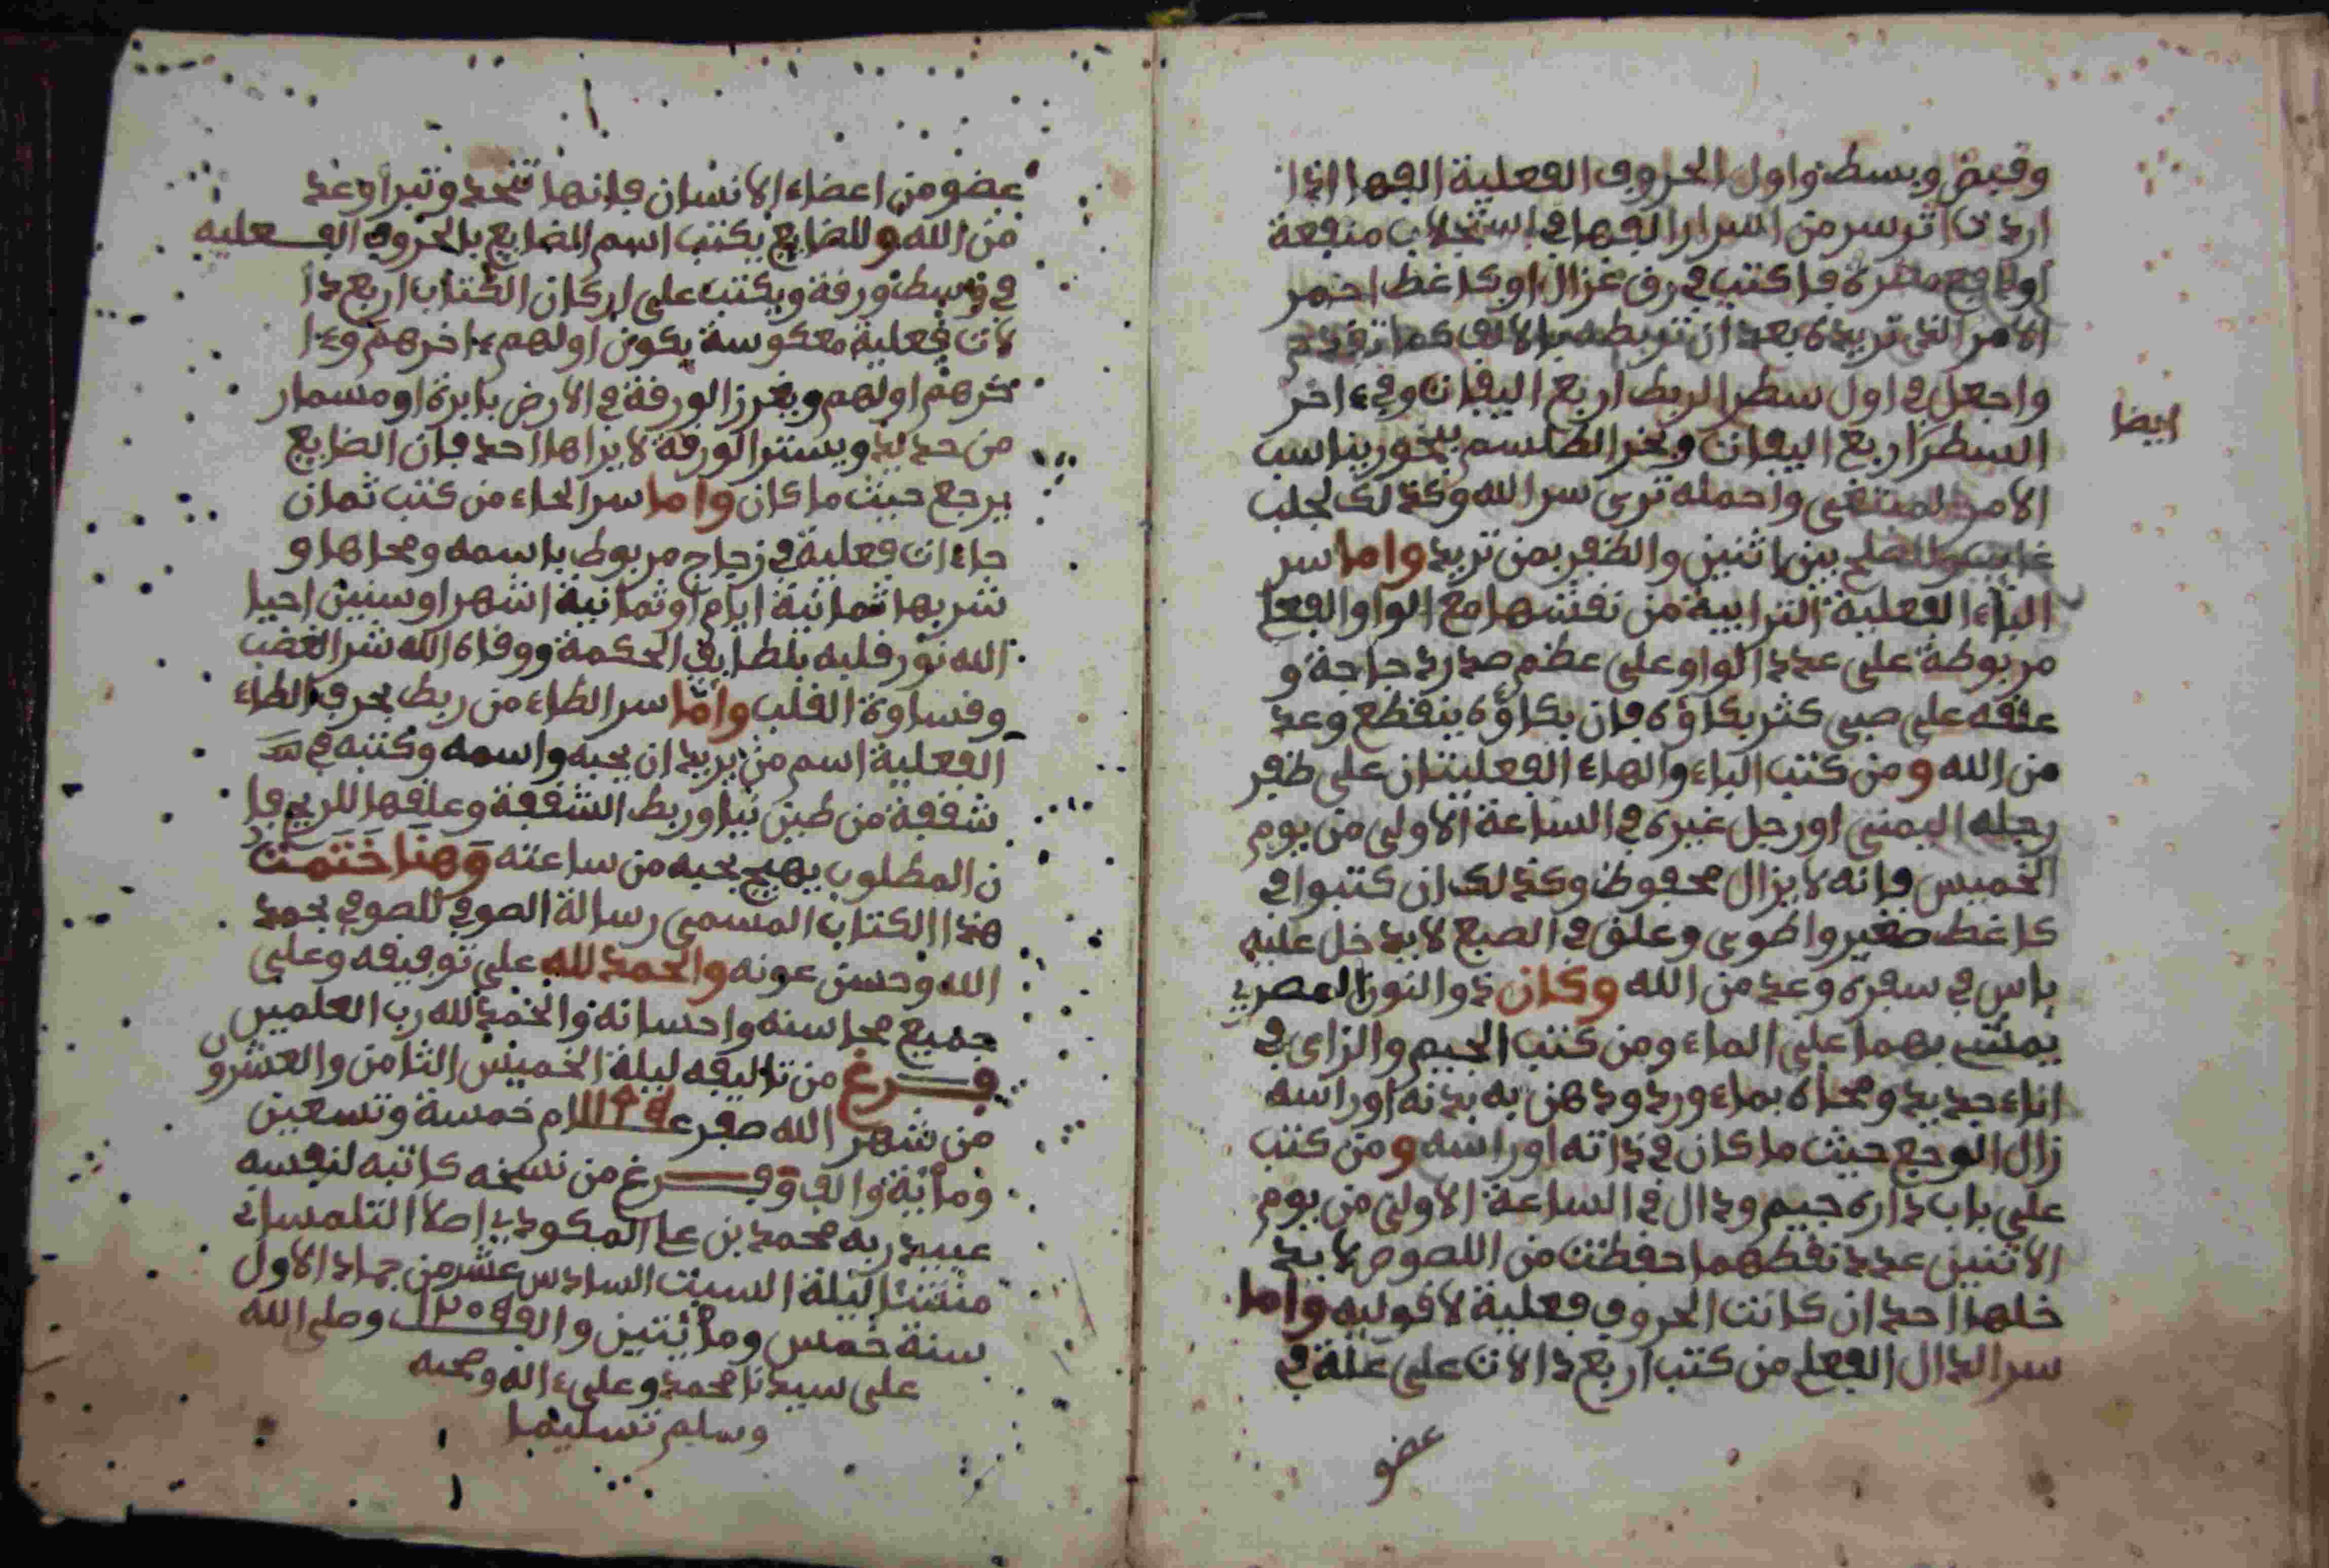 وقبض وبسط واول الحروف الفعلية الفها اذا
اردت اترسر من اسرار الفها في استجلاب منفعة
او دافع مضرة فاكتب في رق غزال او كاغظ احمر
الامر الذي تريده بعد ان تربطه بالالف كما تقدم
واجعل في اول سطر الربط اربع اليفات وفي ءاخر
ايضا
السطر اربع اليفات وبخر الطلسم ببخور يناسب
الامر المبتغى واحمله ترى سر الله وكذلك لجلب
غايب والصلح بين اثنين والظفر بمن تريد واما سر
الباء الفعلية الترابية من نقشها مع الواو الفعل
مربوطة على عدد الواو على عظم صدر دجاجة و
علقه على صبي كثر بكاؤه فان بكاؤه ينقطع وعد
من الله ومن كتب الباء والهاء الفعليتان على ظفر
رجله اليمنى او رجل غيره في الساعة الاولى من يوم
الخميس فانه لا يزال محفوظ وكذلك ان كتبوا في
كاغظ صغير واطوى وعلق في الصبع لا يدخل عليه
باس في سفره وعد من الله وكان ذو النون المصري
يمشي بهما على الماء ومن كتب الجيم والزاي في
اناء جديد ومحاه بماء ورد ودهن به بدنه او راسه
زال الوجع حيث ما كان في ذاته او راسه ومن كتب
على باب داره جيم ودال في الساعة الاولى من يوم
الاثنين عدد نقطهما حفظت من اللصوص لا يد
خلها احد ان كانت الحروف فعلية لا قوليه واما
سر الدال الفعل من كتب اربع دالات على علة في
عضو
عضو من اعضاء الانسان فانها تتحد وتبرأ وعد
من الله وللضايع يكتب اسم الضايع بالحروف الفعليه
في وسط ورقة ويكتب على اركان الكتاب اربع دا
لات فعلية معكوسة يكون اولهم ءاخرهم وءا
خرهم اولهم ويغرز الورقة في الارض بابرة او مسمار
من حديد ويستر الورقة لا يراها احد فان الضايع
يرجع حيث ما كان واما سر الحاء من كتب ثمان
حاءات فعلية في زجاج مربوط باسمه ومحاها و
شربها ثمانية ايام او ثمانية اشهر او سنين احيا
الله نور قلبه بلطايف الحكمة ووقاه الله شر الغضب
وقساوة القلب واما سر الطاء من ربط بحرف الطاء
الفعلية اسم من يريد ان يحبه واسمه وكتبه في
شقفة من طين نيا وربط الشقفة وعلقها للريح فا
ن المطلوب يهيج بحبه من ساعته وَهُنَا خَتَمْتُ
هذا الكتاب المسمى رسالة الصوفي للصوفي بحمد
الله وحسن عونه والحمد لله على توفيقه وعلى
جميع محاسنه واحسانه والحمد لله رب العلمين
فرغ من تاليفه ليلة الخميس الثامن والعشرون
من شهر الله صفر عام خمسة وتسعين
ومائة والف وفرغ من نسخه كاتبه لنفسه
عبيد ربه محمد بن علي المكودي اصلا التلمساني
منشئا ليلة السبت السادس عشر من جماد الاول
سنة خمس ومائتين والف وصلى الله
على سيدنا محمد وعلى ءاله وصحبه
وسلم تسليما